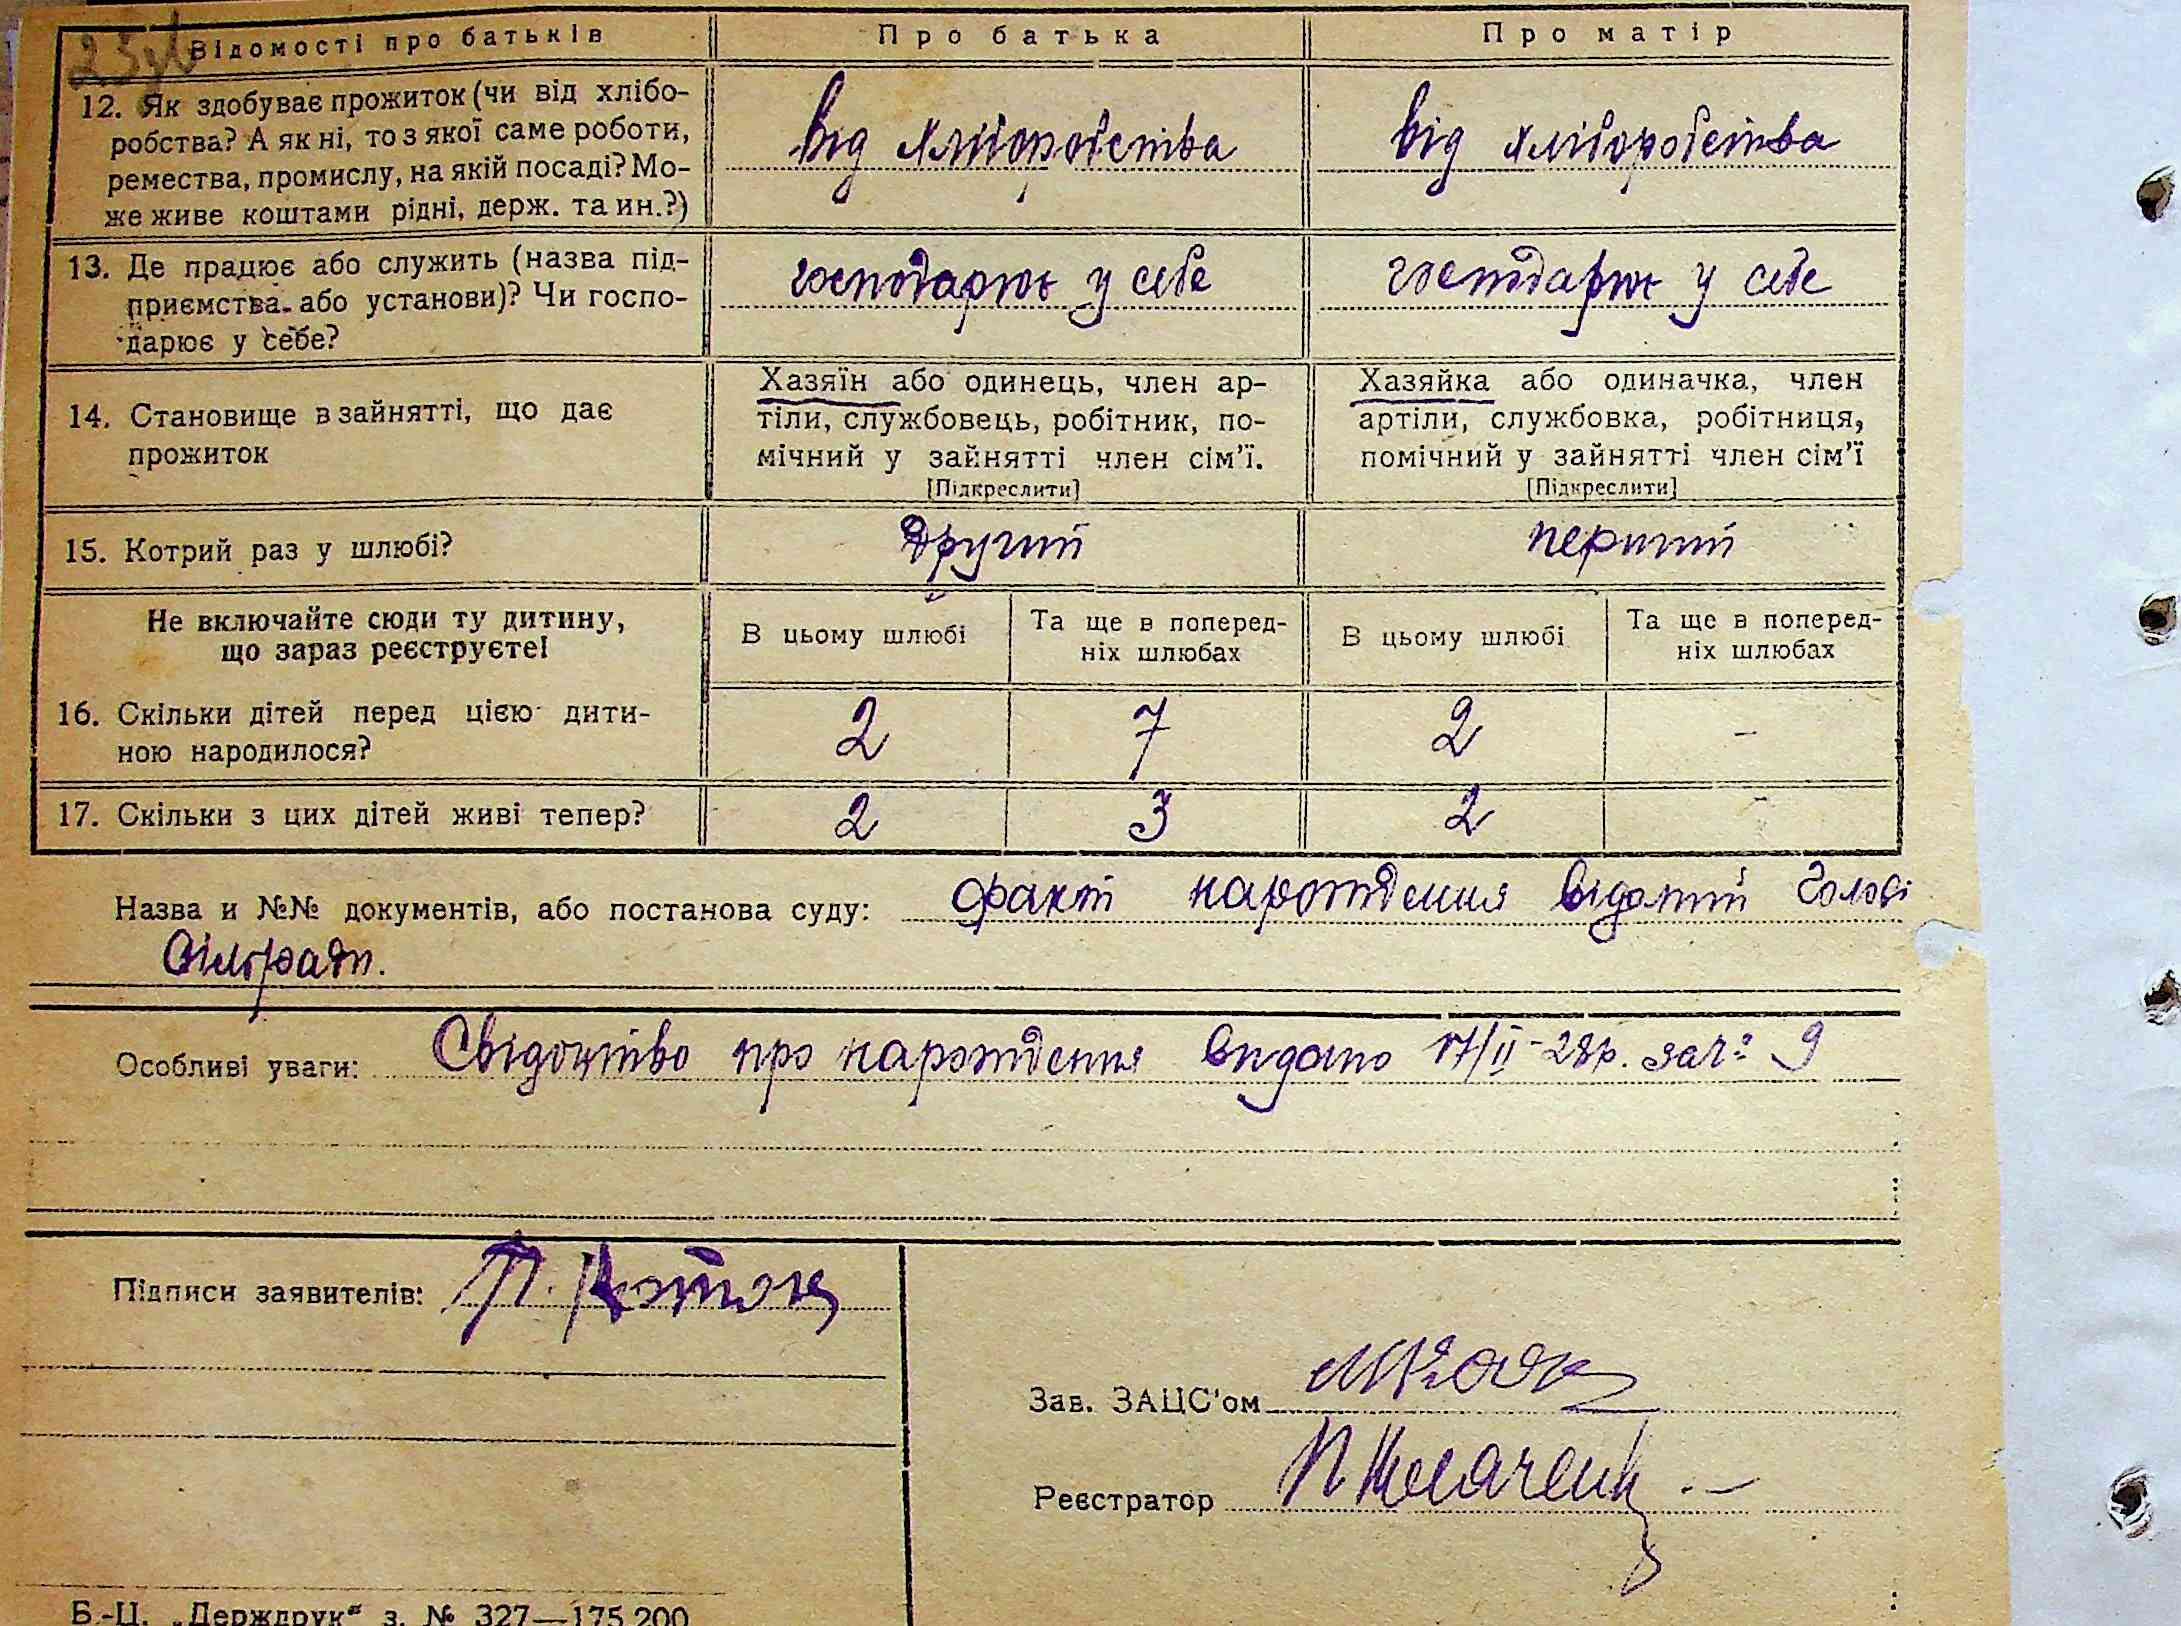 Відомості про батьків
Про батька
Про матір
12. Як здобуває прожиток (чи від хлібо-
робства? А як ні, то з якої саме роботи,
ремества, промислу, на якій посаді? Мо-
же живе коштами рідні, держ. та ин.?)
від хліборобства
від хліборобства
13. Де працює або служить (назва під-
приємства або установи)? Чи госпо-
дарює у себе?
господарює у себе
господарює у себе
14. Становище в зайнятті, що дає
прожиток
Хазяїн або одинець, член ар-
тіли, службовець, робітник, по-
мічний у зайнятті член сім'ї.
[Підкреслити]
Хазяйка або одиначка, член
артіли, службовка, робітниця,
помічний у зайнятті член сім'ї
[Підкреслити]
15. Котрий раз у шлюбі?
другий
перший
Не включайте сюди ту дитину,
що зараз реєструєте!
В цьому шлюбі
Та ще в поперед-
ніх шлюбах
В цьому шлюбі
Та ще в поперед-
ніх шлюбах
16. Скільки дітей перед цією дити-
ною народилося?
2
7
2
-
17. Скільки з цих дітей живі тепер?
2
3
2
-
Назва и №№ документів, або постанова суду: факт нарождення відомий Голові
Сільради.
Особливі уваги: Свідоцтво про нарождення видано 17/II-28р. за ч: 9
Підписи заявителів: П.
Зав. ЗАЦС'ом
Реєстратор
Б.-Ц. „Держдрук“ з. № 327—175.200